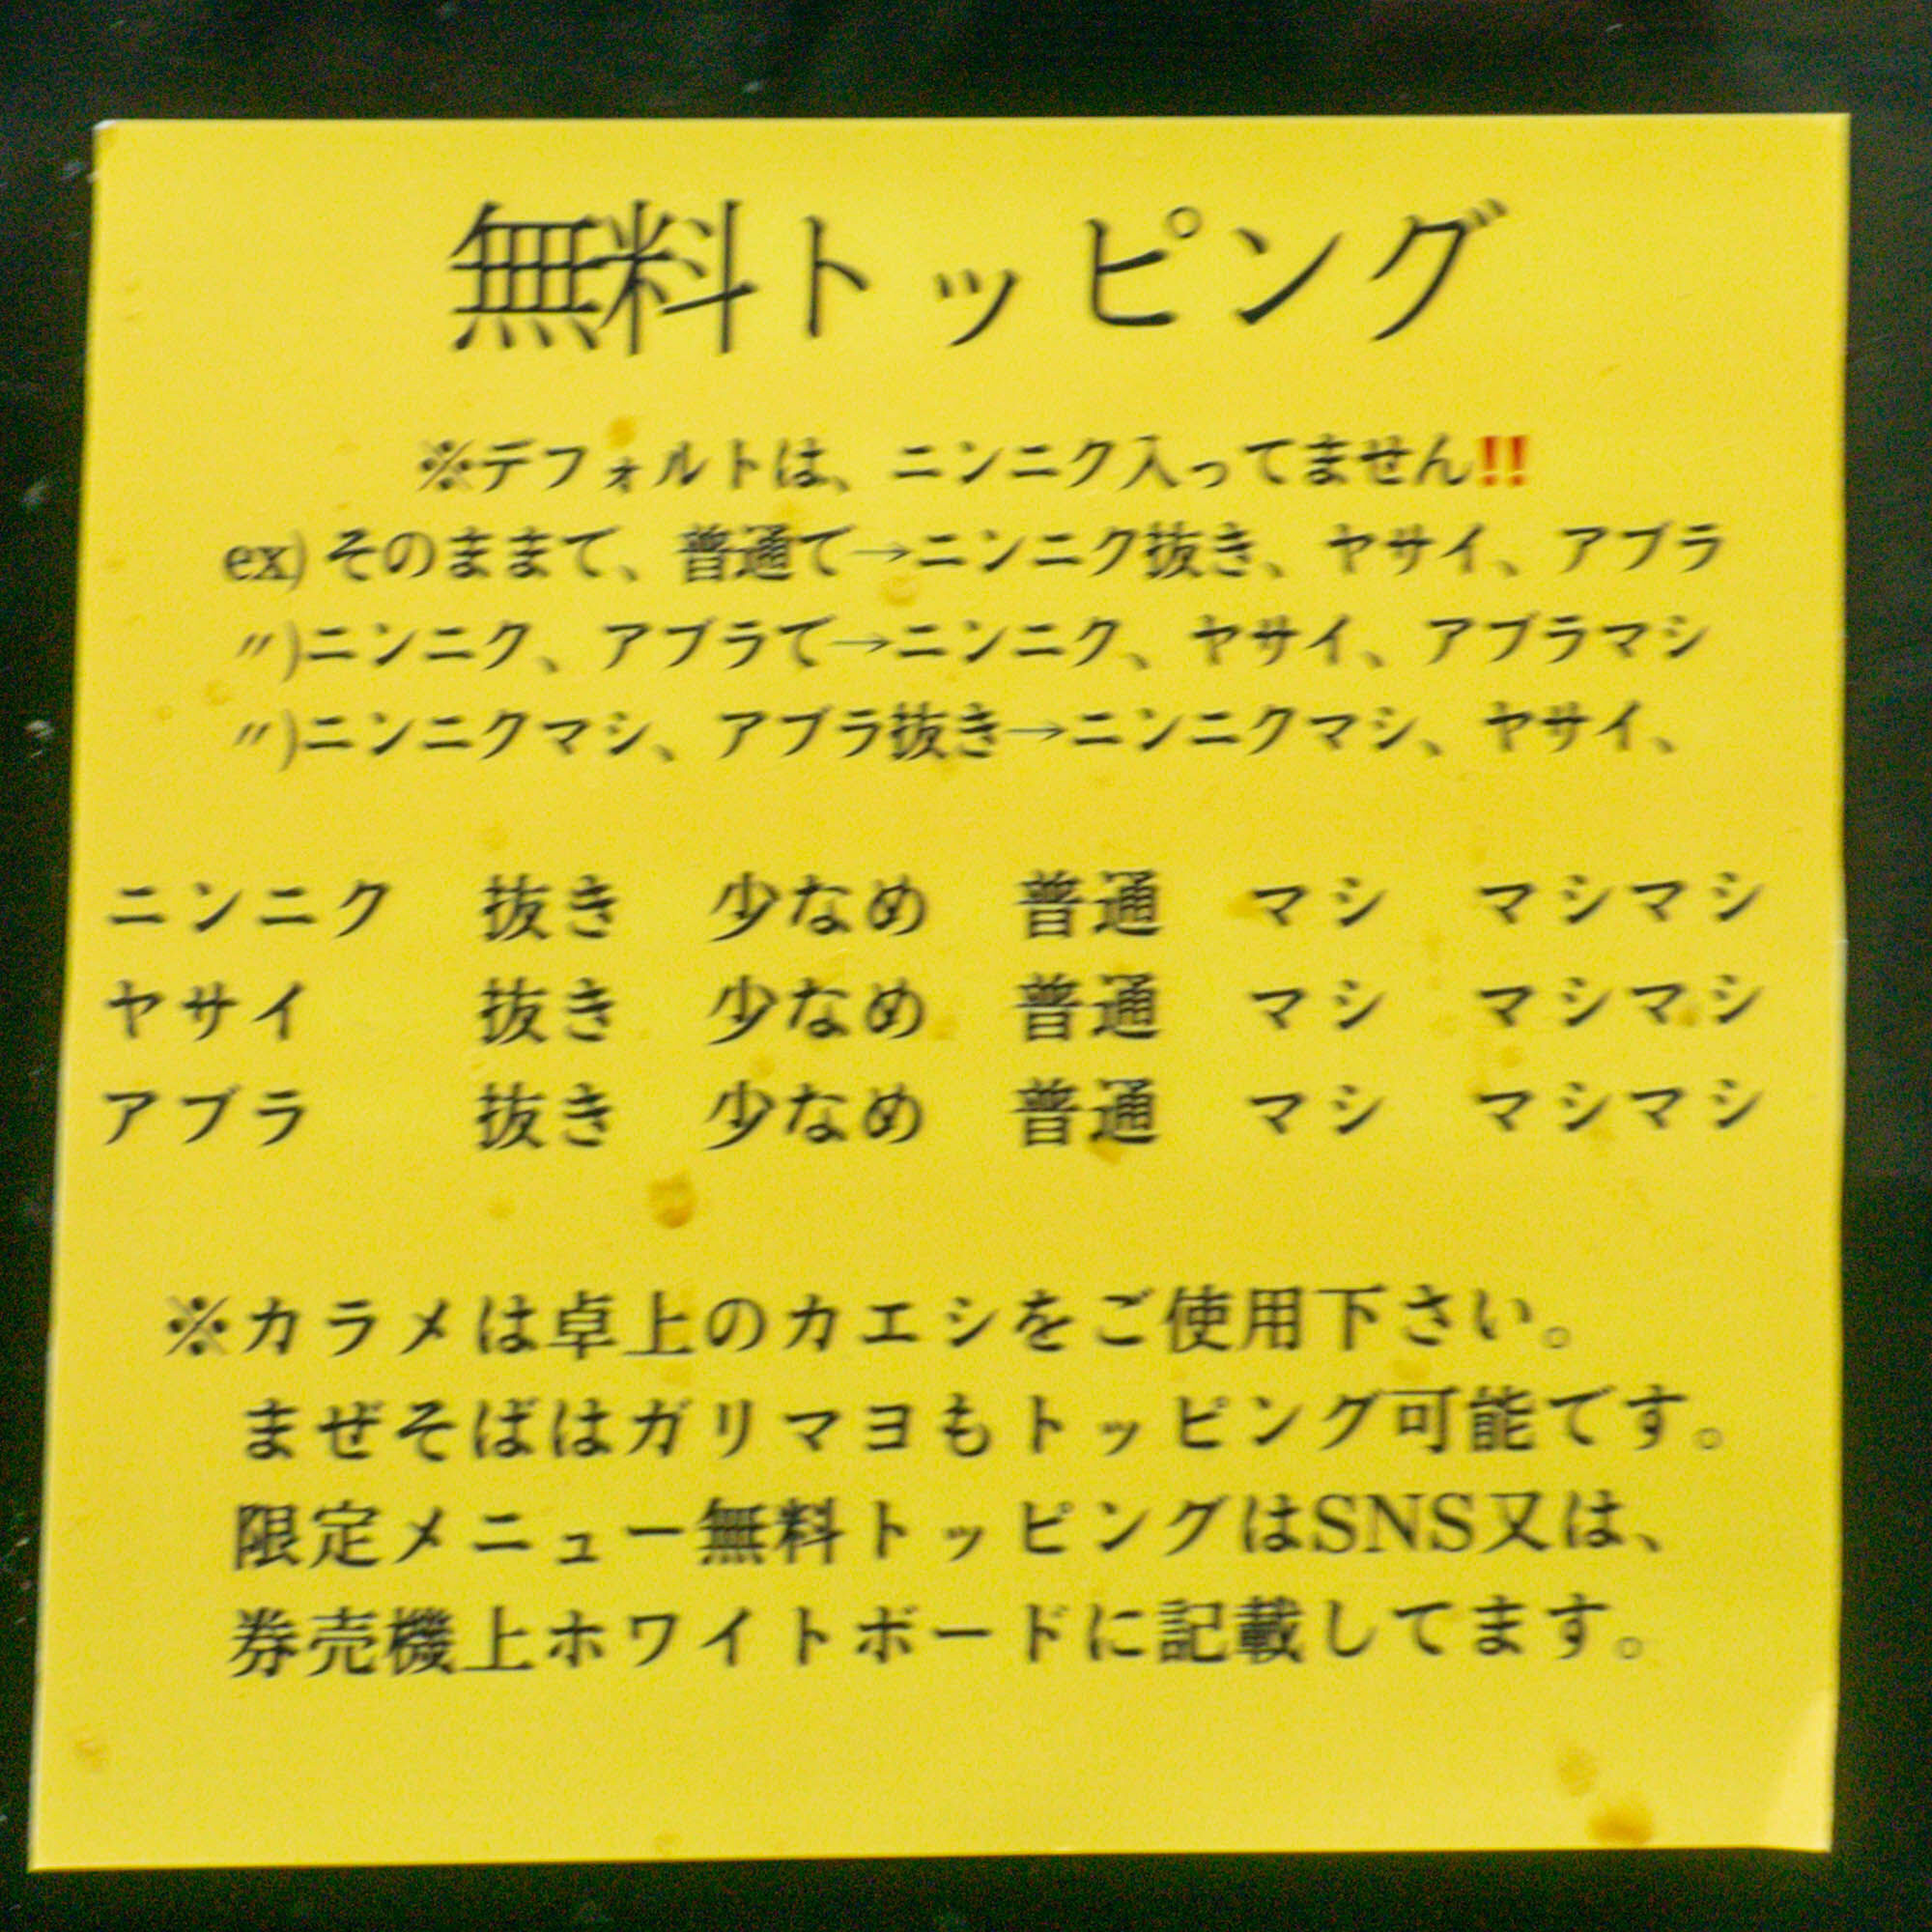 無料トッピング
※デフォルトは、ニンニク入ってません‼
ex) そのままで、普通で→ニンニク抜き、ヤサイ、アブラ
〃)ニンニク、アブラで→ニンニク、ヤサイ、アブラマシ
〃)ニンニクマシ、アブラ抜き→ニンニクマシ、ヤサイ、
ニンニク 抜き 少なめ 普通 マシ マシマシ
ヤサイ 抜き 少なめ 普通 マシ マシマシ
アブラ 抜き 少なめ 普通 マシ マシマシ
※カラメは卓上のカエシをご使用下さい。
まぜそばはガリマヨもトッピング可能です。
限定メニュー無料トッピングはSNS又は、
券売機上ホワイトボードに記載してます。